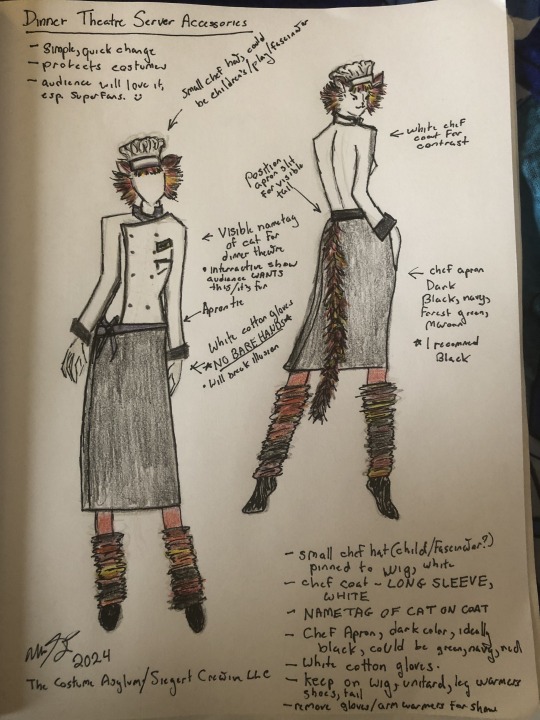 Dinner Theatre Server Accessories
- Simple, quick change
- protects costumes
- audience will love it,
esp. Superfans. ü
small chef hat, could
be children's/play/fascinator
← white chef
coat for
contrast
Position
apron slit
for visible
tail
← Visible nametag
of cat for
dinner theatre
• interractive show
audience WANTS
this/it's fun
Apron tie
White cotton gloves
* NO BARE HANDS *
• Will break illusion
← chef apron
Dark
Black, navy,
Forest green,
Maroon
* I recommed
Black
- small chef hat (child/fascinator?)
pinned to wig, white
- chef coat - LONG SLEEVE,
WHITE
- NAMETAG OF CAT ON COAT
- Chef Apron, dark color, ideally
black, could be green, navy, red
- White cotton gloves.
- keep on wig, unitard, leg warmers
shoes, tail
- remove gloves/arm warmers for show
2024
The Costume Asylum/Siegert Creative LLC